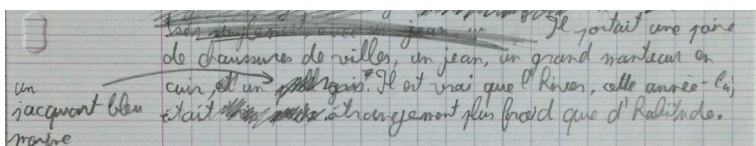 Il portait une paire
de chaussures de villes, un jean, un grand manteau en
cuir, et un gris* Il est vrai que l'hiver, cette année-là,
était étrangement plus froid que d'habitude.
un
jacquart bleu
marine